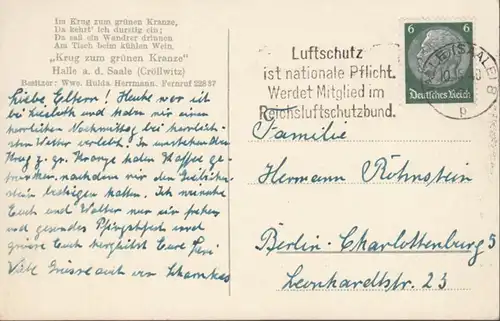 Im Krug zum grünen Kranze,
Da kehrt' ich durstig ein;
Da saß ein Wandrer drinnen
Am Tisch beim kühlen Wein.
„Krug zum grünen Kranze"
Halle a. d. Saale (Cröllwitz)
Besitzer: Wwe. Hulda Herrmann. Fernruf 22887
Liebe Eltern! Heute war ich
bei und haben wir einen
herrlichen Nachmittag bei herrlich-
stem Wetter verlebt. Im umstehenden
Krug z. gr. Kranze haben Kaffee ge-
trunken, nachdem wir den
stein bestiegen hatten. Ich wünsche
Euch und Walter nur ein frohes
und gesundes Pfingstfest und
grüsse Euch herzlichst Eure
Viele Grüsse auch von
Luftschutz
ist nationale Pflicht.
Werdet Mitglied im
Reichsluftschutzbund.
6 6
Deutsches Reich
HALLE (SAALE)
p
Familie
Hermann Rohnstein
Berlin-Charlottenburg 5
Leonhardtstr. 23